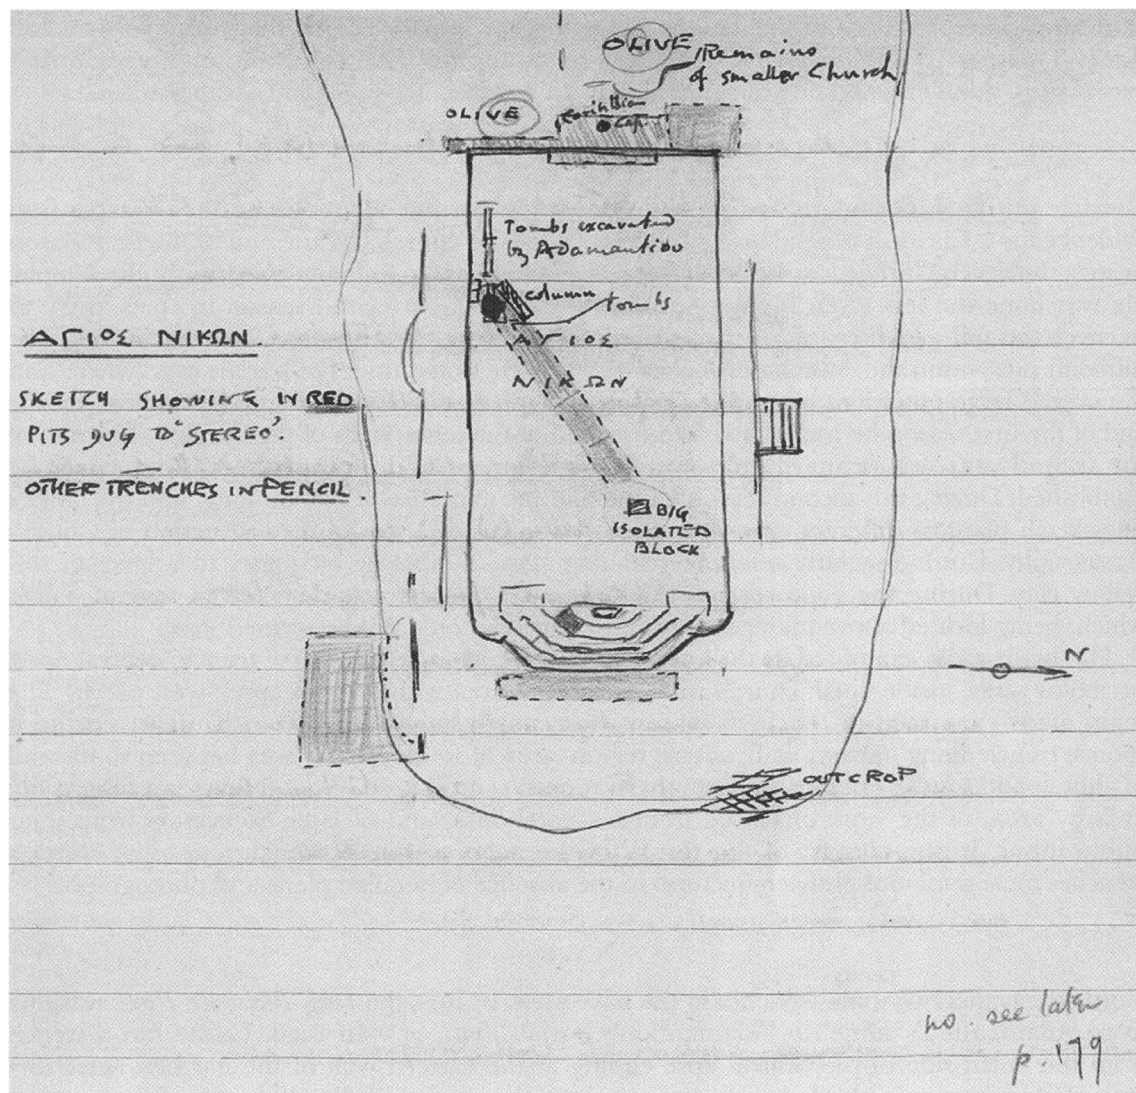 OLIVE
Remains
of smaller Church
OLIVE
Corinthian
Cap.
Tombs excavated
by Adamantiou
column
tombs
ΑΓΙΟΣ
ΝΙΚΩΝ
ΑΓΙΟΣ ΝΙΚΩΝ.
SKETCH SHOWING IN RED
PITS DUG TO 'STEREO'.
OTHER TRENCHES IN PENCIL.
BIG
ISOLATED
BLOCK
N
OUTCROP
no. see later
p. 179